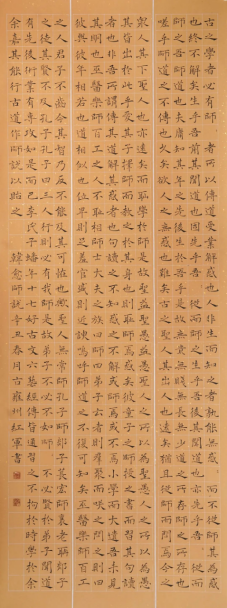 古之學者必有師 者所以傳道受業解惑也人非生而知之者孰能無惑 而不從師其為惑
也終不解矣生乎吾前其聞道也固先乎吾 從而師之生乎吾後其聞道也亦先乎吾 從而
師之吾師道也夫庸知其年之先後生於吾乎是故無貴無賤無長無少道之所存師之所存也
嗟乎師道之不傳也久矣欲人之無惑也難矣古之聖人其出人也遠矣猶且從師而問焉今之
衆人其下聖人也亦遠矣而恥學於師是故聖益聖愚益愚聖人之所以為聖愚人之所以為愚
其皆出於此乎愛其子擇師而教之於其身也則恥師焉惑矣彼童子之師授之書而習其句讀
者也非吾所謂傳其道解其惑者也句讀之不知惑之不解或師焉或不焉小學而大遺吾未見
其明也巫醫樂師百工之人不恥相師士大夫之族曰師曰弟子云者則羣聚而笑之問之則曰
彼與彼年相若也道相似也位卑則足羞官盛則近諛嗚呼師道之不復可知矣巫醫樂師百工
之人君子不齒今其智乃反不能及其可怪也歟聖人無常師孔子師郯子萇弘師襄老聃郯子
之徒其賢不及孔子孔子曰三人行則必有我師是故弟子不必不如師 不必賢於弟子聞道
有先後術業有專攻如是而已李氏子蟠年十七好古文六藝經傳皆通習之不拘於時學於余
余嘉其能行古道作師說以貽之 韓愈師說辛丑春月古雍州紅軍書